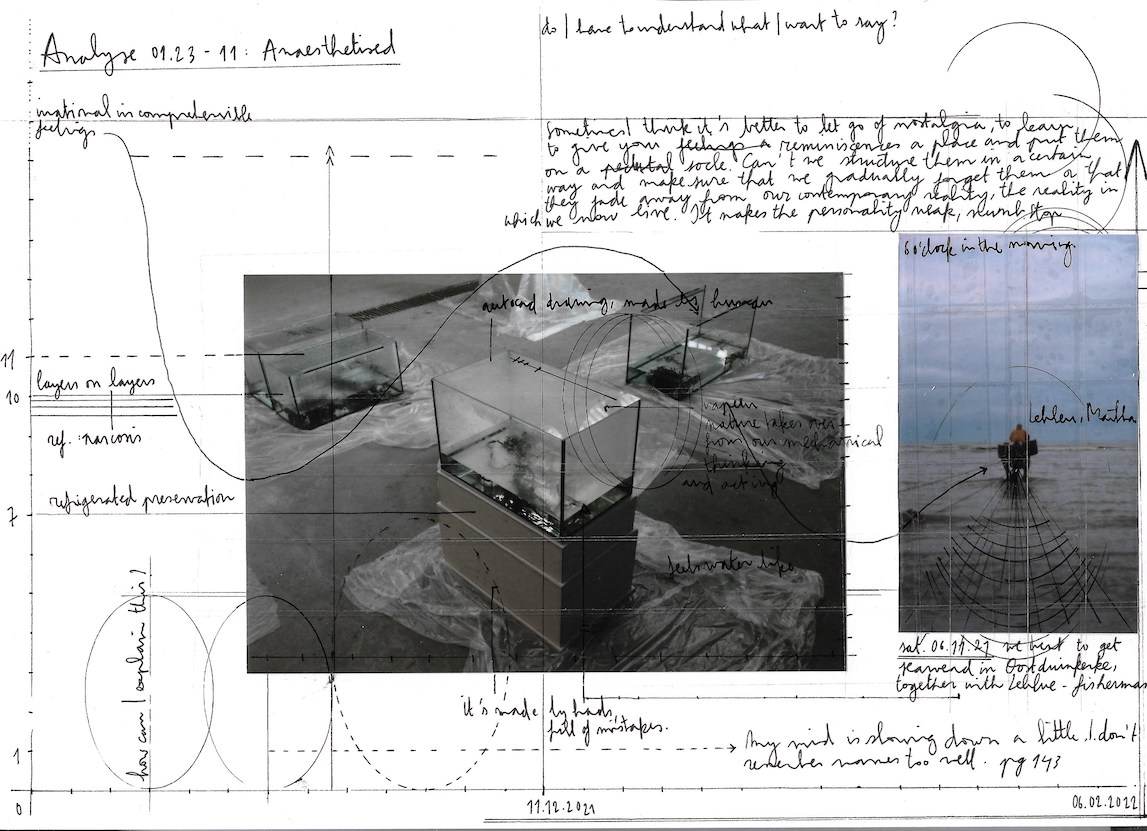 Analyse 01.23 - 11 : Anaesthetised
do I have to understand what I want to say?
irrational incomprehensible
feelings
sometimes I think it's better to let go of nostalgia, to learn
to give your feelings a reminiscences a place and put them
on a pedestal socle. Can't we structure them in a certain
way and make sure that we gradually forget them or that
they fade away from our contemporary reality, the reality in
which we now live. It makes the personality weak, stop
6 o'clock in the morning.
autocad drawing, made by human
11
layers on layers
10
ref. : narcosis
nature takes over
from our mechanical
thinking
and acting
Martha
refrigerated preservation
7
feels water like
how can I explain this?
sat. 06.11.21 we went to get
seaweed in Oostduinkerke,
together with fisherman
it's made by hads,
full of mistapes.
My mid is slowing down a little. I don't
remember names too well. pg 143
1
0
11.12.2021
06.02.2022